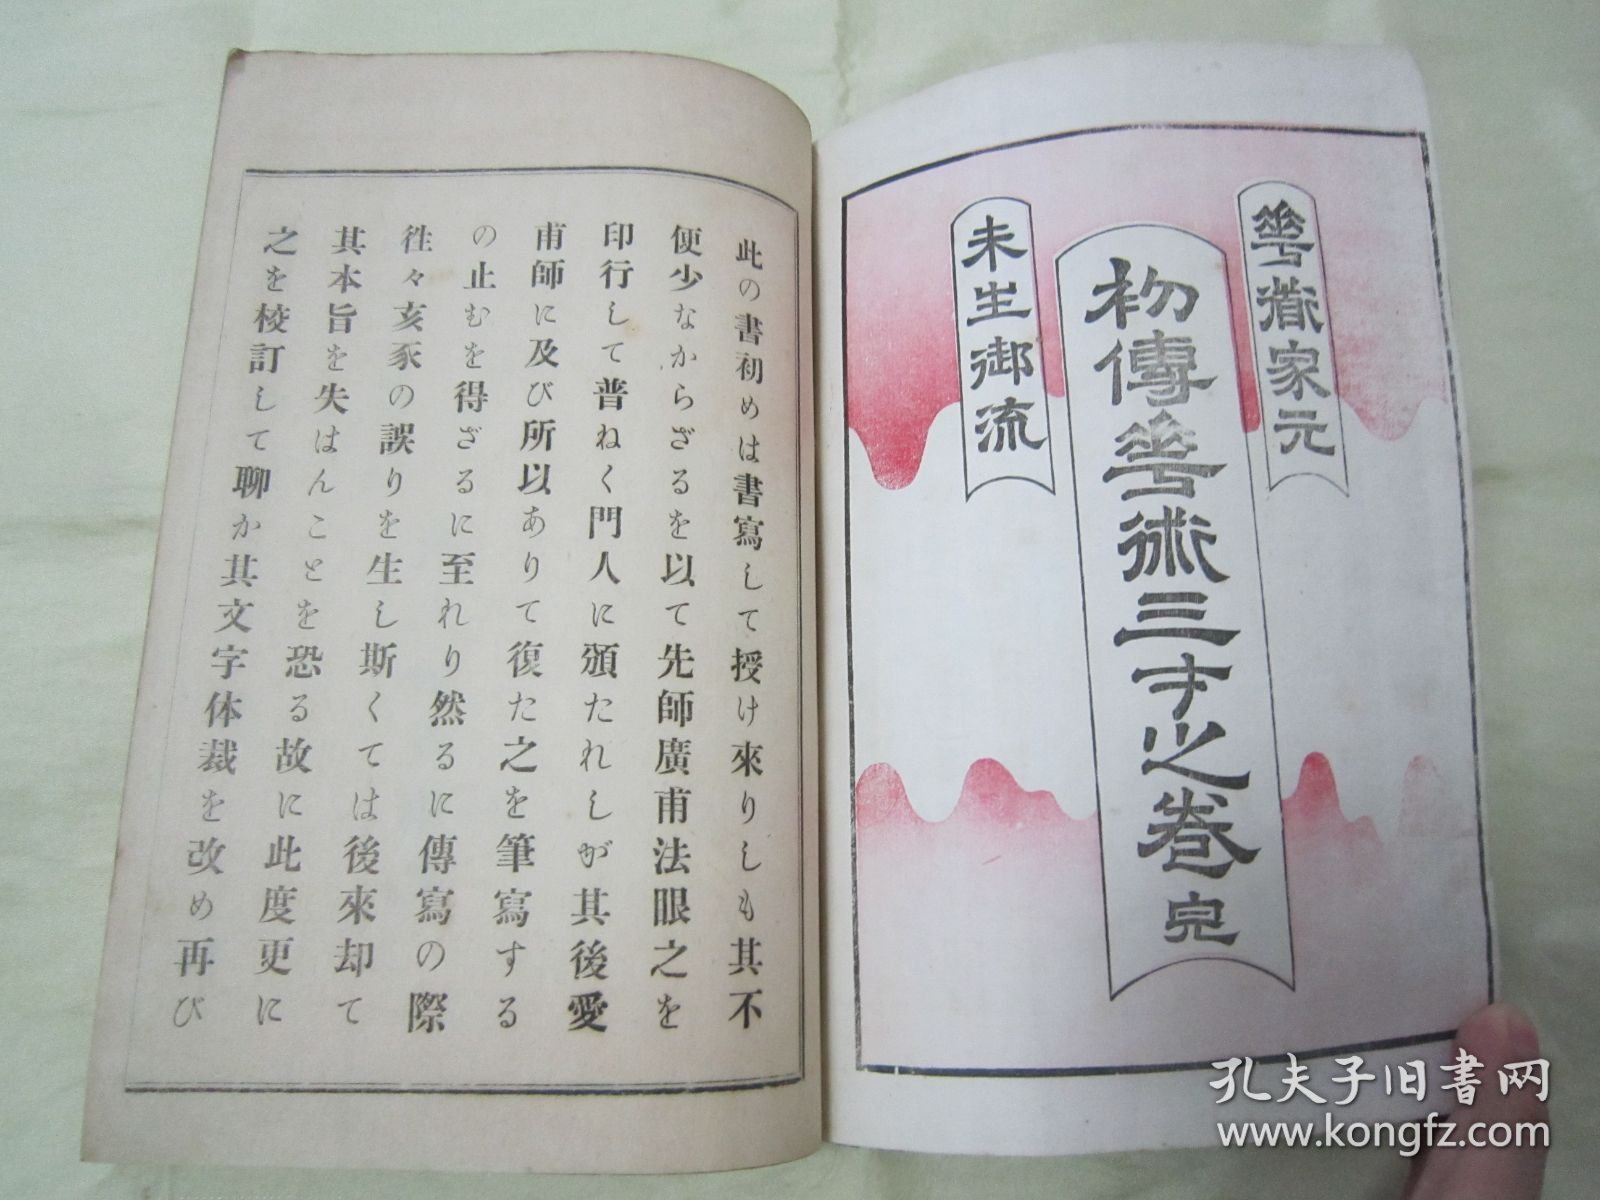 華道家元
初傳華術三才之巻 完
未生御流
此の書初めは書寫して授け來りしも其不
便少なからざるを以て先師廣甫法眼之を
印行して普ねく門人に頒たれしが其後愛
甫師に及び所以ありて復た之を筆寫する
の止むを得ざるに至れり然るに傳寫の際
徃々亥豕の誤りを生し斯くては後來却て
其本旨を失はんことを恐る故に此度更に
之を校訂して聊か其文字体裁を改め再び
孔夫子旧书网
www.kongfz.com